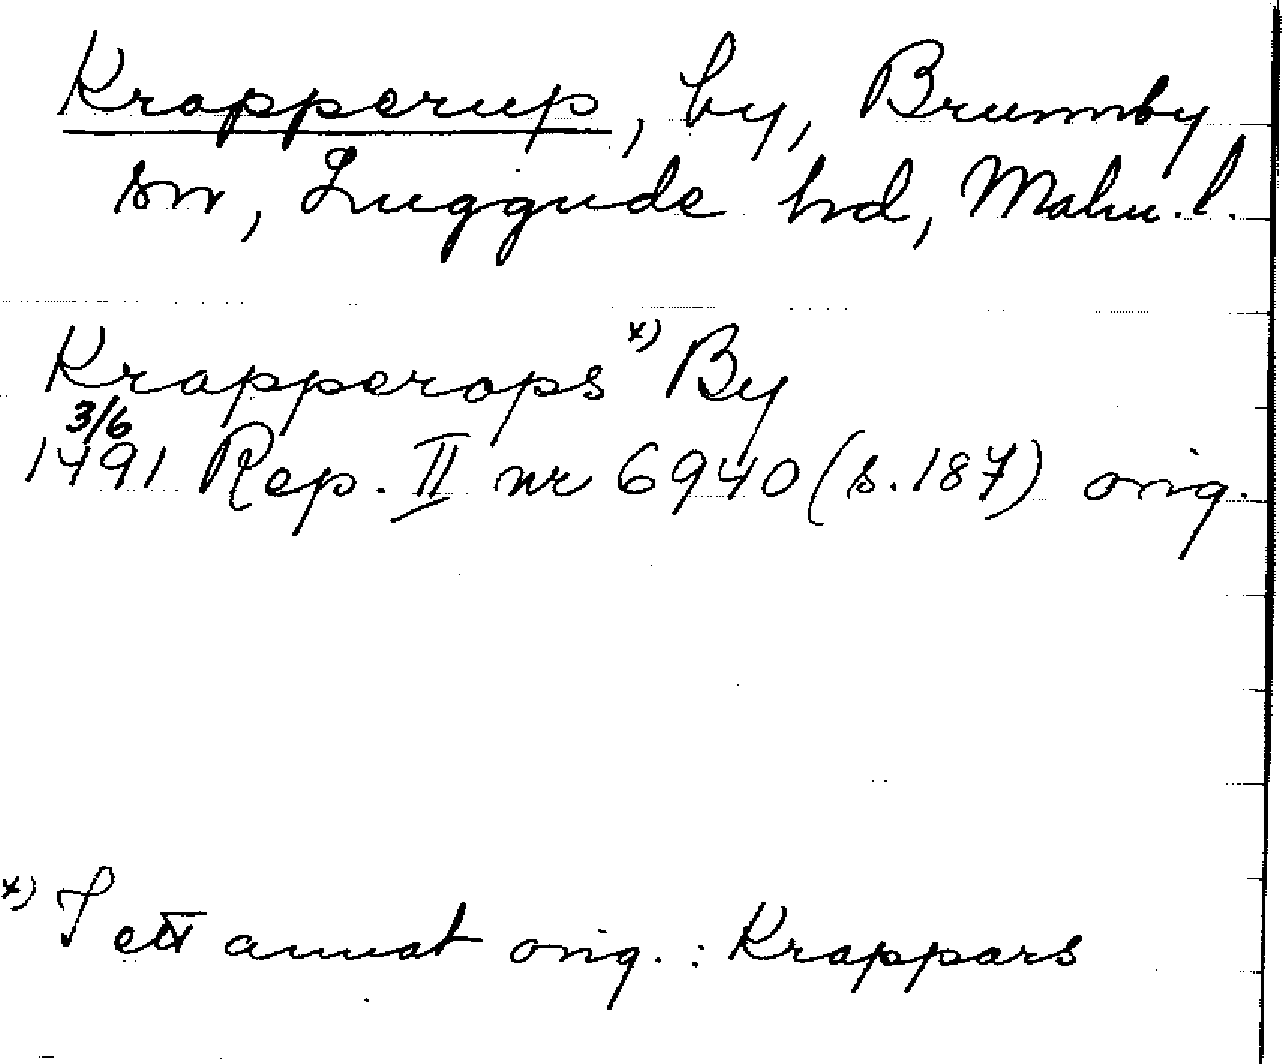 Krapperup, by, Brunnby
sn, Luggude hd, Malm. l.
Krapperops x) By
3/6
1491 Rep. II nr 6940 (s. 187) orig.
x) I ett annat orig. : Krappars